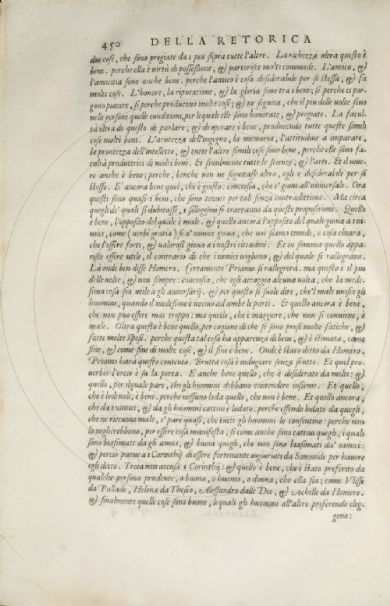 450 DELLA RETORICA
due cose, che sono pregiate da i più sopra tutte l'altre. La richezza oltra questo è
bene. perche ella è virtù di possessione, & partorisce molti commodi. L'amico, &
l'amicitia sono anche bene. perche l'amico è cosa desiderabile per se stessa, & fa
molte cose. L'honore, la riputatione, & la gloria sono tra i beni; si perche ci por-
gono piacere, si perche producono molte cose; & ne seguita, che il piu delle volte sono
nelle persone quelle conditioni, per lequali elle sono honorate, & pregiate. La facul-
tà oltra di questo di parlare, & di operare è bene, producendo tutte queste simili
cose molti beni. L'acutezza dell'ingegno, la memoria, l'attitudine a imparare,
la prontezza dell'intelletto, & tutte l'altre simili cose sono bene, perche elle sono fa-
cultà produttrici di molti beni. Et similmente tutte le scienze, & l'arti. Et il viue-
re anche è bene; perche, benche non ne seguitasse altro, egli è desiderabile per se
stesso. E' ancora bene quel, che è giusto: conciosia, che è gioua all'uniuersale. Ora
questi sono quasi i beni, che sono tenuti per tali senza contradittione. Ma circa
quegli de' quali si dubitasse, i sillogismi si trarranno da queste propositioni. Quello
è bene, l'opposito del quale è male, & quello ancora l'opposito del quale gioua a ne-
mici, come (uerbi gratia) se a' nimici gioua, che noi siamo timidi, è cosa chiara,
che l'essere forti, & valorosi gioua a i nostri cittadini. Et in somma quello appa-
risce essere utile, il contrario di che i nimici uogliono, & del quale si rallegrano.
La onde ben disse Homero. Certamente Priamo si rallegrerà. ma questo è il piu
delle uolte, & non sempre: conciosia, che egli accaggia alcuna uolta, che la mede-
sima cosa sia utile a gli auuersarij. & per questo si suole dire, che'l male unisce gli
huomini, quando il medesimo è nociuo ad ambe le parti. Et quello ancora è bene,
che non può essere mai troppo: ma quello, che è maggiore, che non si conuiene, è
male. Oltra questo è bene quello, per cagione di che si sono prese molte fatiche, &
fatte molte spese. perche questa tal cosa ha apparenza di bene, & è stimata, come
fine, & come fine di molte cose, & il fine è bene. Onde è stato detto da Homero.
Priamo harà questo contento. Brutta cosa è indugiare senza frutto. Et quel pro-
uerbio l'orcio è su la porta. E anche bene quello, che è desiderato da molti: &
quello, per il quale pare, che gli huomini debbano contendere insieme. Et quello,
che è lodeuole; è bene. perche nessuno loda quello, che non è bene. Et quello ancora,
che da i nimici, & da gli huomini cattiui è lodato. perche essendo lodato da quegli,
che ne riceuono male, e' pare quasi, che tutti gli huomini lo consentino: perche non
lo negherebbono, per essere cosa manifesta, si come anche sono cattiui quegli, i quali
sono biasimati da gli amici, & buoni quegli, che non sono biasimati da' nimici:
& perciò parue a i Corinthij di essere fortemente ingiuriati da Simonide per hauere
egli detto. Troia non accusa i Corinthij: & quello è bene, che è stato preferito da
qualche persona prudente, o buona, o huomo, o donna, che ella sia: come Vlisse
da Pallade, Helena da Theseo, Alessandro dalle Dee, & Achille da Homero.
& finalmente quelle cose sono buone, lequali gli huomini all'altre preferendo eleg-
gono: